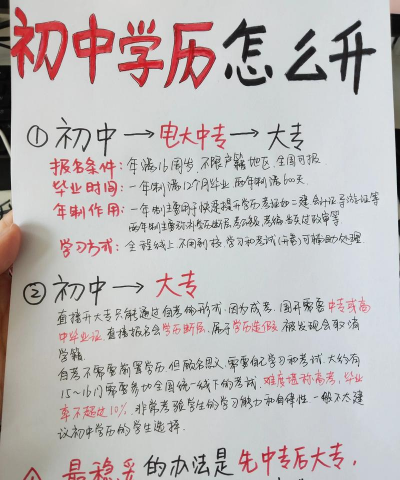 初中学历怎么升
① 初中 → 电大中专 → 大专
报名条件: 年满16周岁, 不限户籍地区, 全国可报
毕业时间: 一年制满12个月毕业 两年制满600天
年制作用: 一年制主要用于快速提升学历考证如二建、会计证、导游证等
两年制主要弥补学历断层,
学习方式: 全程线上, 不用到校 学习和考试(开卷)可辅助处理
② 初中 → 大专
直接升大专只能通过自考的形式, 因为成考、国开需要中专或高
中毕业证 直接报名会学历断层, 属于学历造假 被发现会取消
学籍.
自考不需要前置学历, 但顾名思义, 需要自己学习和考试, 大约有
15~16门需要参加全国统一线下的考试, 难度堪称高考, 毕业
率不超过10%, 非常考验学生的学习能力和自律性 一般不太建
议初中学历的学生选择.
最稳妥的办法是先中专后大专,